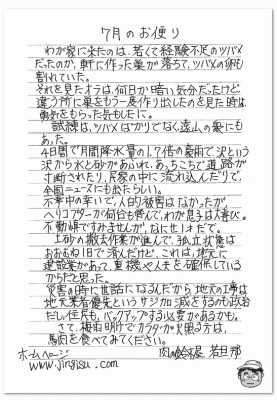 7月のお便り
わが家に来たのは、若くて経験不足のツバメ
だったのか、軒に作った巣が落ちて、ツバメの卵も
割れていた。
それを見たオラは、何日か暗い気分だったけど、
違う所に巣をもう一度作り出したのを見た時は、
勇気をもらった気もした。
試練は、ツバメばかりでなく、遠山の衆にも
あった。
4日間で月間降水量の1.7倍の豪雨で沢という
沢から水と砂があふれ、あっちこちで道路が
寸断されたり、民家の中に流れ込んだりで、
全国ニュースにも出たらしい。
不幸中の幸いで、人的な被害はなかったが、
ヘリコプターが何台も音して、わが息子は大喜び。
不勤慎ですみませんが、なに仕1才だで。
土砂の撤去作業が進んで、孤立状態は
おおむね1日で済んだけど、これは、地元に
建設業があって、重機や人夫を確保している
からだと思った。
災害の時に世話になるんだから、地元の工事は
地元業者優先というサジ加減をするのも政治
だし、住民も、バックアップする必要があるかも。
さて、梅雨明けでカラダーが火照る方は、
馬肉を食べてみてください。
ホームページ 肉の鈴木屋 若旦那
www.jingisu.com